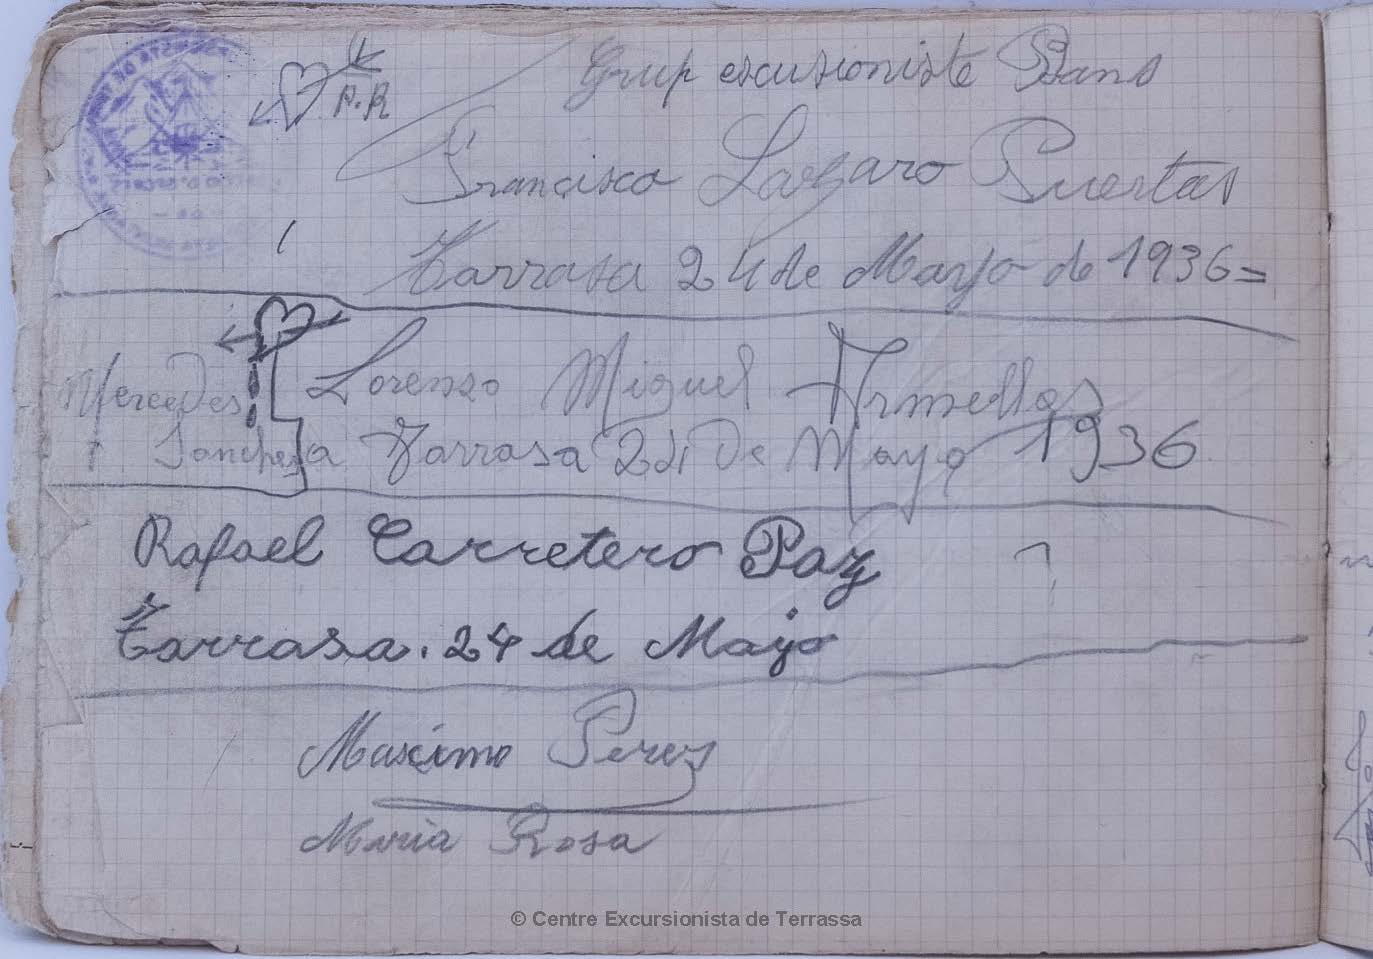 P.R
Grup escursioniste Bans
Francisco Lazaro Puertas
Tarrasa 24 de Mayo de 1936=
Mercedes Lorenzo Miguel Armellas
Sanchez a Tarrasa 24 De Mayo 1936
Rafael Carretero Paz
Tarrasa. 24 de Mayo
Maximo Perez
Maria Rosa
© Centre Excursionista de Terrassa